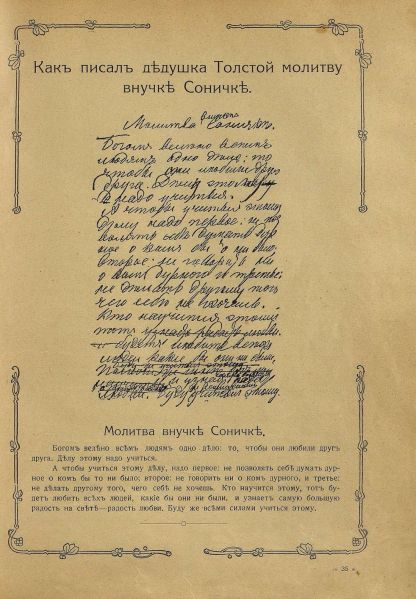 Какъ писалъ дѣдушка Толстой молитву
внучкѣ Соничкѣ.
Молитва внучкѣ Соничкѣ.
Богомъ велѣно всѣмъ
людямъ одно дѣло: то,
чтобы они любили другъ
друга. Дѣлу этому
надо учиться.
А чтобы учиться этому
дѣлу, надо первое: не поз
волять себѣ думать дур
ное о комъ бы то ни было,
второе: не говорить ни
о комъ дурного и третье:
не дѣлать другому того,
чего себѣ не хочешь.
Кто научится этому,
тотъ
будетъ любить всѣхъ
людей какие бы они ни были,
Буду учиться этому
Молитва внучкѣ Соничкѣ.
Богомъ велѣно всѣмъ людямъ одно дѣло: то, чтобы они любили другъ
друга. Дѣлу этому надо учиться.
А чтобы учиться этому дѣлу, надо первое: не позволять себѣ думать дур-
ное о комъ бы то ни было; второе: не говорить ни о комъ дурного, и третье:
не дѣлать другому того, чего себѣ не хочешь. Кто научится этому, тотъ бу-
детъ любить всѣхъ людей, какіе бы они ни были, и узнаетъ самую большую
радость на свѣтѣ—радость любви. Буду же всѣми силами учиться этому.
35